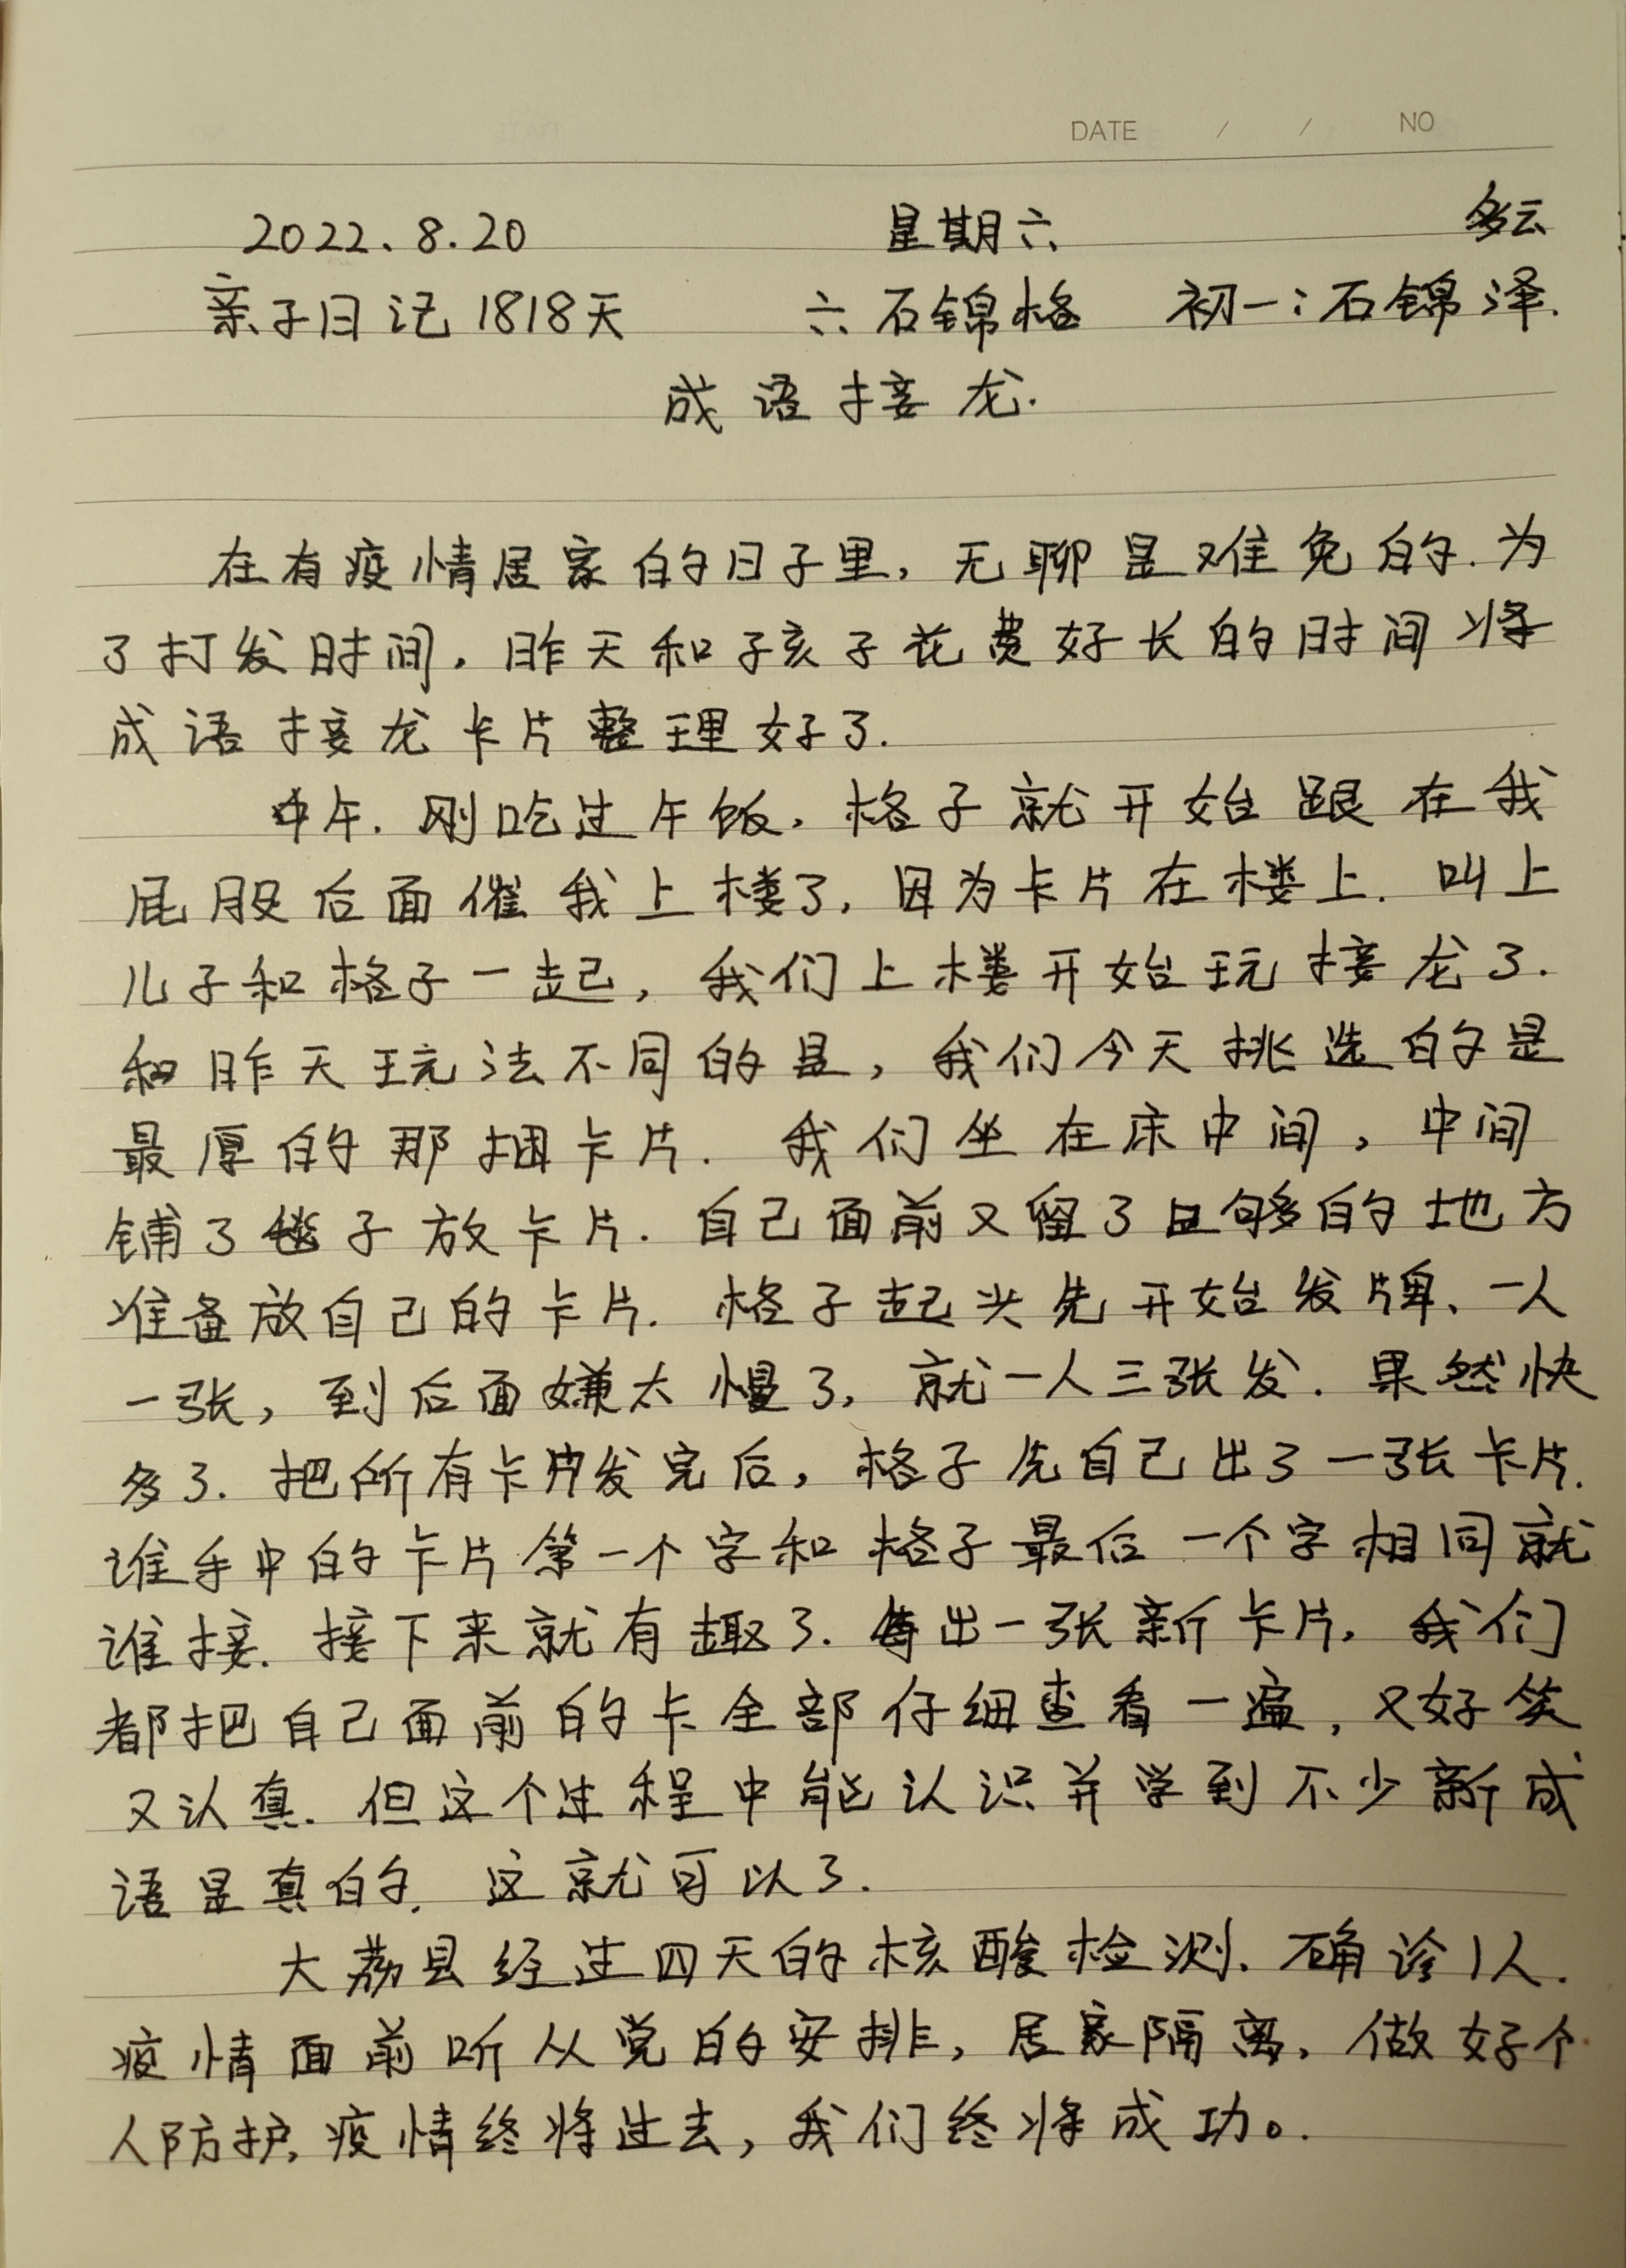 DATE / / NO
2022.8.20 星期六 多云
亲子日记1818天 六石锦格 初一:石锦泽.
成语接龙.
在有疫情居家的日子里,无聊是难免的.为
了打发时间.昨天和孩子花费好长的时间将
成语接龙卡片整理好了.
中午.刚吃过午饭,格子就开始跟在我
屁股后面催我上楼了,因为卡片在楼上.叫上
儿子和格子一起,我们上楼开始玩接龙了.
和昨天玩法不同的是,我们今天挑选的是
最厚的那捆卡片.我们坐在床中间,中间
铺了毯子放卡片.自己面前又留了足够的地方
准备放自己的卡片.格子起头先开始发牌、一人
一张,到后面嫌太慢了,就一人三张发.果然快
多了.把所有卡片发完后,格子先自己出了一张卡片.
谁手中的卡片第一个字和格子最后一个字相同就
谁接.接下来就有趣了.每出一张新卡片,我们
都把自己面前的卡全部仔细查看一遍,又好笑
又认真.但这个过程中能认识并学到不少新成
语是真的.这就可以了.
大荔县经过四天的核酸检测.确诊1人.
疫情面前听从党的安排,居家隔离,做好个
人防护,疫情终将过去,我们终将成功。.